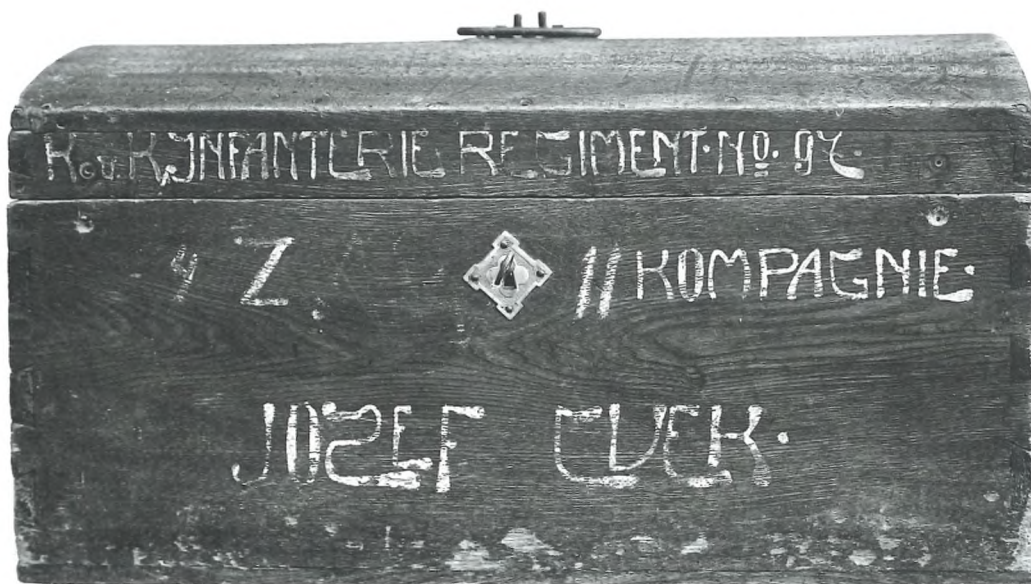 K.u.K JNFANTERIE REGIMENT·No·97·
4 Z. 11 KOMPAGNIE·
JOZEF CVEK·